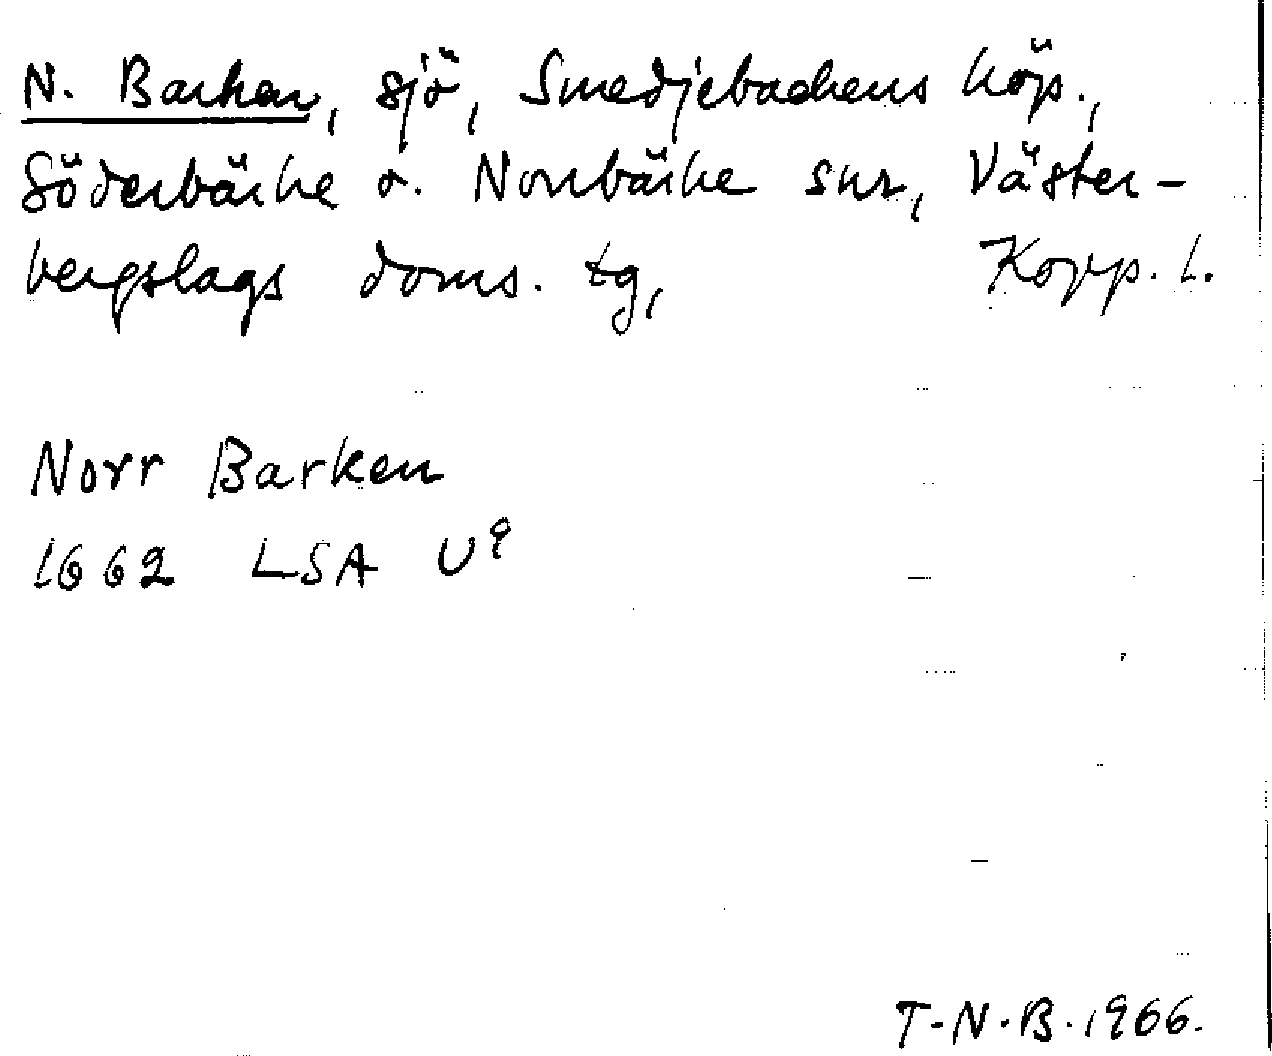 N. Barken, sjö, Smedjebackens köp.,
Söderbärke o. Norrbärke snr, Väster-
bergslags doms. tg, Kopp. l.
Norr Barken
1662 LSA U9
T-N-B. 1966.